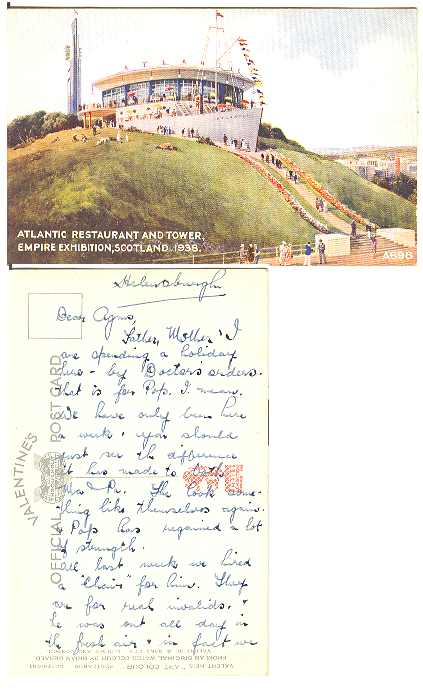 ATLANTIC RESTAURANT AND TOWER,
EMPIRE EXHIBITION, SCOTLAND. 1938.
A698
Helensburgh
Dear Agnes,
Father, Mother & I
are spending a holiday
here - by Doctor's orders.
that is for Pop. I mean.
We have only been here
a week & you should
just see the difference
it has made to both
Ma & Pa. They look some-
thing like themselves again.
& Pop has regained a lot
of strength.
All last week we hired
a "Chair" for him. They
are for real invalids. &
he was out all day in
the fresh air & in fact we
VALENTINE'S
OFFICIAL POST CARD
VALENTINE'S "ART COLOUR"
FROM AN ORIGINAL WATER COLOUR BY
VALENTINE & SONS, LTD. DUNDEE AND LONDON